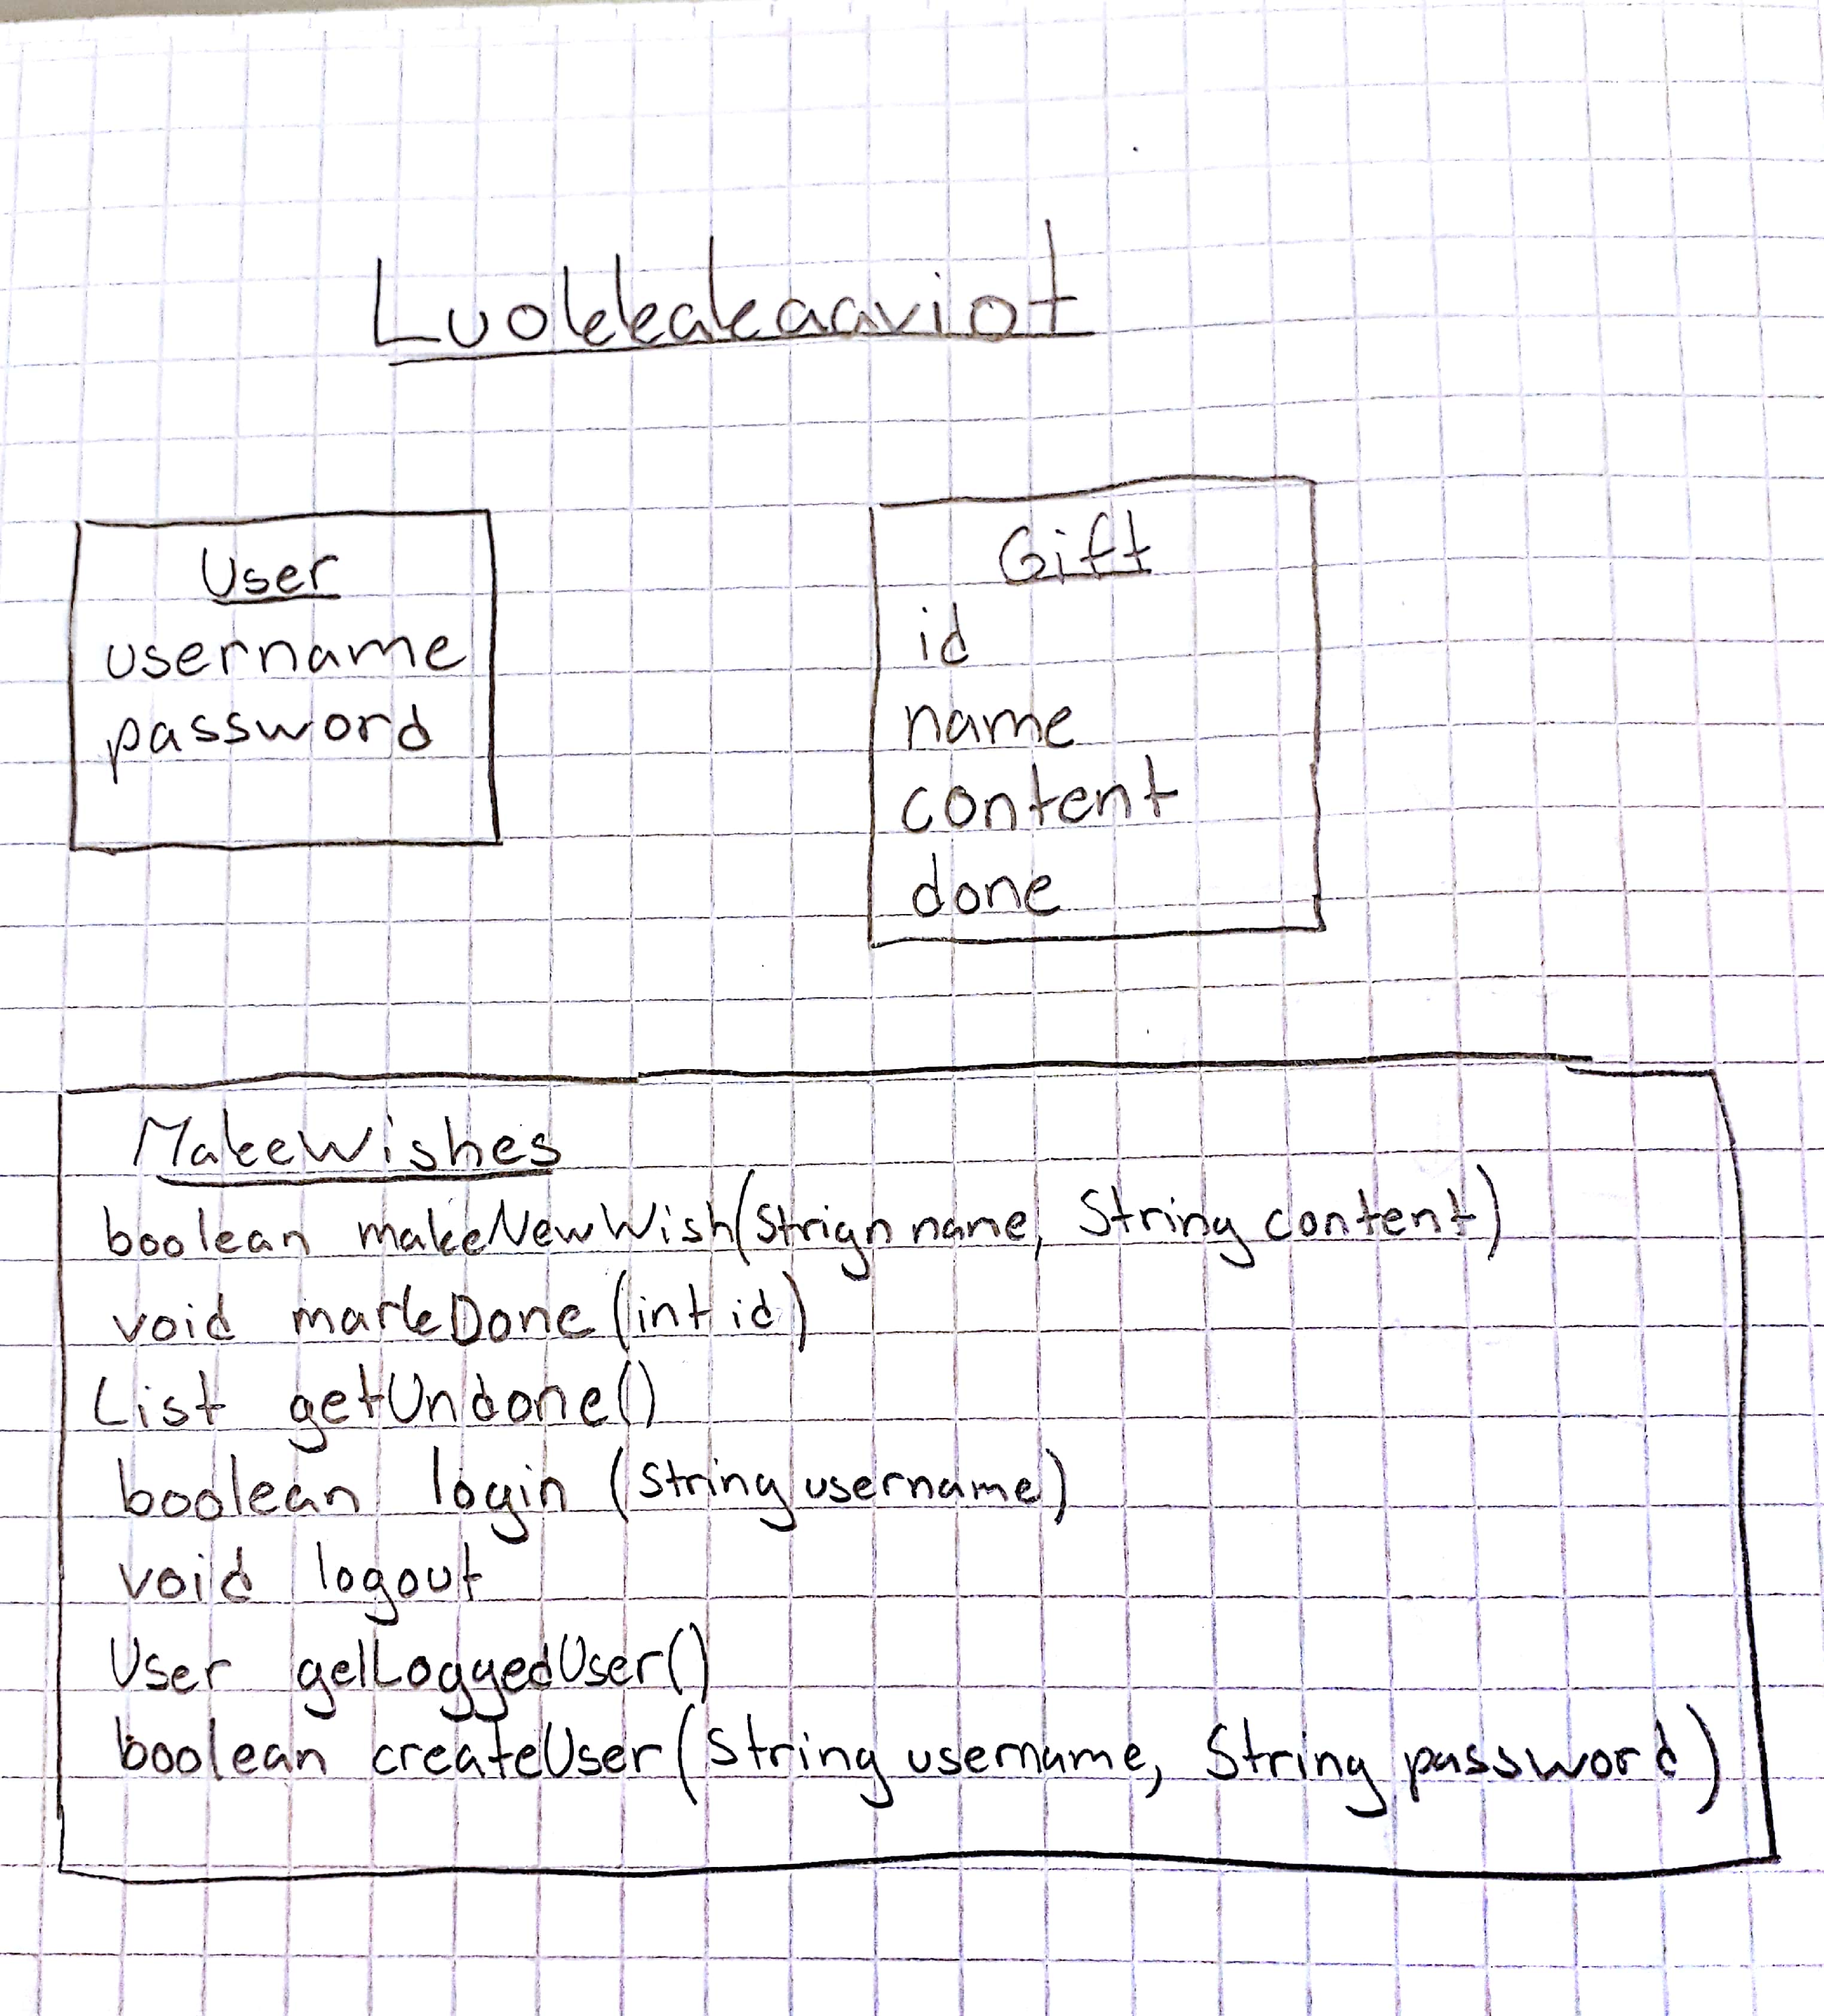 Luokkakaaviot
User
username
password
Gift
id
name
content
done
MakeWishes
boolean makeNewWish(Strign name, String content)
void markDone (int id)
List getUndone()
boolean login (String username)
void logout
User getLoggedUser()
boolean createUser (String username, String password)